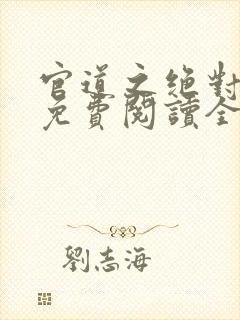 官道之绝對
免費閱讀全
劉志海